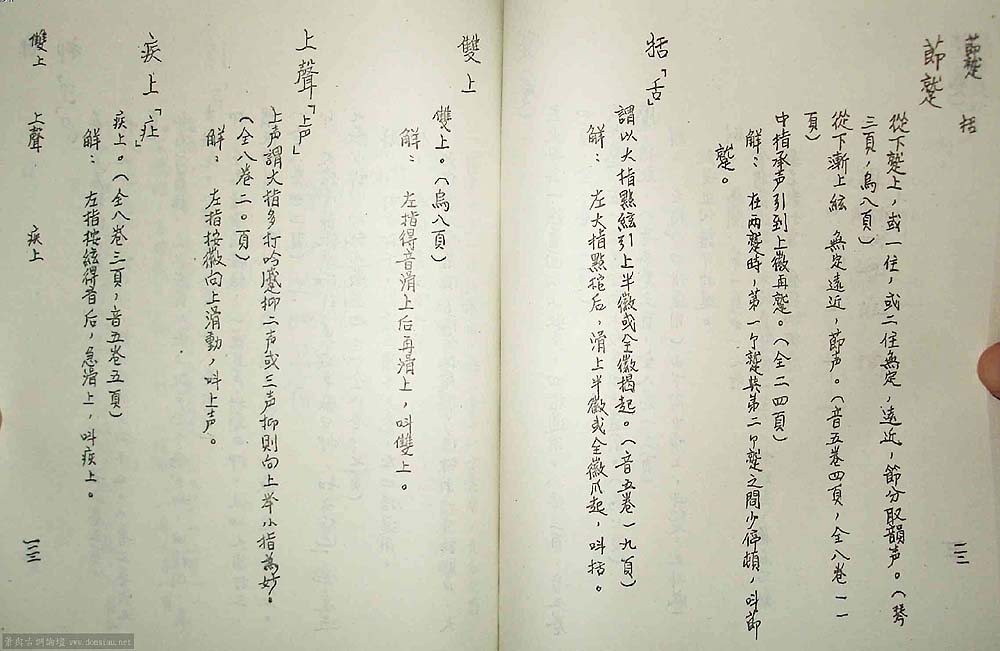 節蹙　括
節蹙
從下蹙上，或一住，或二住無定，遠近，節分取韻声。（琴
三頁，烏八頁）
從下漸上絃　無定遠近，節声。（音五卷四頁，全八卷一一
頁）
中指承声引到上徽再蹙。（全二四頁）
解：在兩蹙時，第一个蹙與第二个蹙之間少停頓，叫節
蹙。
二二
括「舌」
謂以大指點絃引上半徽或全徽搯起。（音五卷一九頁）
解：左大指點绾后，滑上半徽或全徽爪起，叫括。
雙上
雙上。（烏八頁）
解：左指得音滑上后再滑上，叫雙上。
上聲「上声」
上声謂大指多打吟處抑二声或三声抑則向上举小指為妙。
（全八卷二〇頁）
解：左指按徽向上滑動，叫上声。
疾上
疾上。（全八卷三頁，音五卷五頁）
解：左指按絃得音后，急滑上，叫疾上。
雙上　上聲　疾上
二三
www.donsiau.net